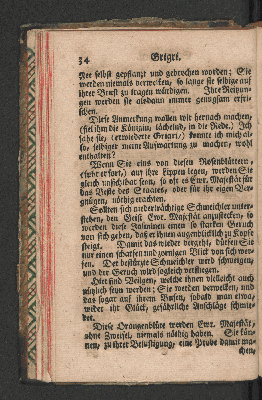 34 Grigri.
Nee selbst gepflanzt und gebrochen worden; Sie
werden niemals verwelken, so lange sie selbige auf
ihrer Brust zu tragen würdigen. Ihre Reizun-
gen werden sie alsdann immer genugsam erfri-
schen.
Diese Anmerkung wollen wir hernach machen,
(fiel ihm die Königinn lächelnd, in die Rede.) Ich
habe sie, (erwiederte Grigri,) konnte ich mich al-
so, selbiger meine Aufwartung zu machen, wohl
enthalten?
Wenn Sie eins von diesen Rosenblättern,
(fuhr er fort,) auf ihre Lippen legen, werden Sie
gleich unsichtbar seyn, so oft es Ewr. Majestät für
das Beste des Staates, oder für ihr eigen Ver-
gnügen, nöthig erachten.
Sollten sich niederträchtige Schmeichler unter-
stehen, den Geist Ewr. Majestät anzustecken, so
werden diese Jasminen einen so starken Geruch
von sich geben, daß er ihnen augenblicklich zu Kopfe
steigt. Damit das wieder vergeht, dürfen Sie
nur einen scharfen und zornigen Blick von sich wer-
fen. Der bestürzte Schmeichler wird schweigen,
und der Geruch wird sogleich verfliegen.
Hier sind Veilgen, welche ihnen vielleicht auch
nützlich seyn werden; Sie werden verwelken, und
das sogar auf ihrem Busen, sobald man etwa,
wider ihr Glück, gefährliche Anschläge schmie-
det.
Diese Orangenblüte werden Ewr. Majestät,
ohne Zweifel, niemals nöthig haben. Sie kön-
nen, zu ihrer Belustigung, eine Probe damit ma-
chen,